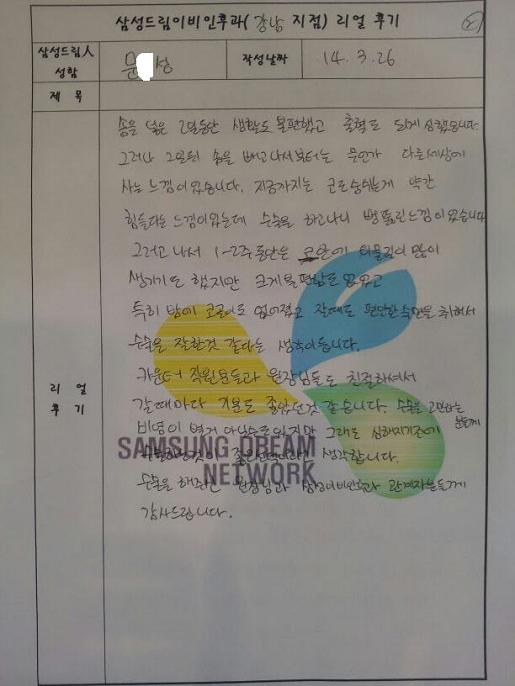 삼성드림이비인후과( 강남 지점) 리얼 후기
삼성드림人 성함
문 성
작성날짜
14. 3. 26
제 목
리 얼 후 기
솜을 넣은 2일동안 생활도 불편했고 출혈도 되게 심했습니다.
그러나 2일뒤 솜을 빼고 나서부터는 무언가 다른세상에
사는 느낌이었습니다. 지금까지는 코로 숨쉬는게 약간
힘들다는 느낌이있는데 수술을 하고나니 뻥 뚫린느낌이었습니다
그러고 나서 1~2주동안은 코안에 이물질이 많이
생기기도 했지만 크게불편함도 없었고
특히 밤에 코골이도 없어졌고 잘때도 편안한 숙면을 취해서
수술을 잘한것 같다는 생각이듭니다.
카운터 직원분들과 원장님들도 친절하셔서
갈때마다 기분도 좋았던것 같습니다. 수술을 고민하는 분들께
비염이 별거 아닐수도있지만 그래도 심해지기전에
수술하는것이 생각합니다.
수술을 해주신 원장님과 삼성이비인후과 관계자분들께
감사드립니다.
SAMSUNG DREAM
NETWORK